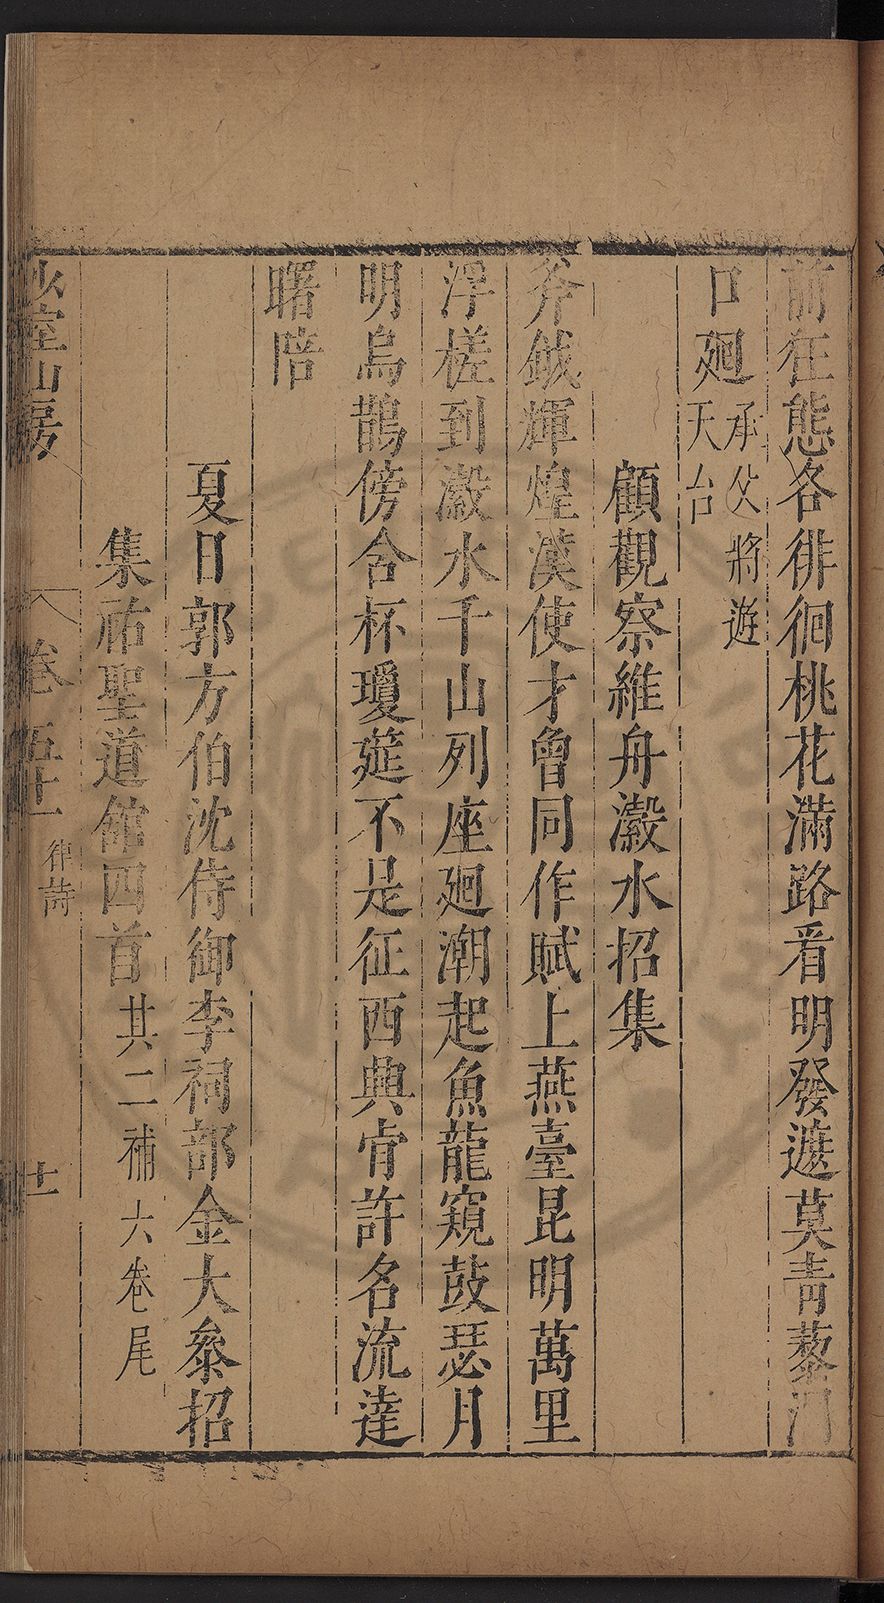 前狂態各徘徊桃花滿路看明發遮莫青藜門
口廻承父將遊
天台
顧觀察維舟瀫水招集
斧鉞輝煌漢使才曾同作賦上燕臺昆明萬里
浮槎到瀫水千山列座廻潮起魚龍窺鼓瑟月
明烏鵲傍含杯瓊筵不是征西典肯許名流達
曙陪
夏日郭方伯沈侍御李祠部金大參招
集祐聖道館四首其二補六卷尾
少室山房
卷五十一
律詩
十一